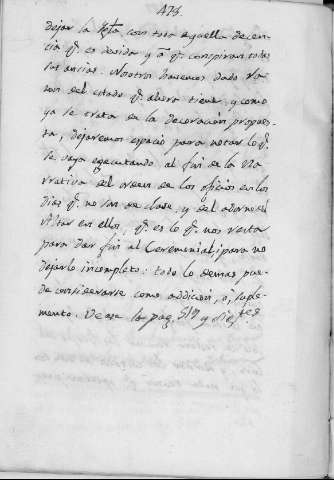 428.
dejar la Ygla con toda aquella decen-
cia q.e es devida y à q.e conspiran todas
las ancias. Nosotros havemos dado ra-
zon del estado q.e ahora tiene, y como
ya se trata en la decoracion propues-
ta, dejaremos espacio para notar lo q.e
se vaya egecutando al fin de la Na-
rrativa del orden de los oficios en los
dias q.e no son de clase, y del adorno del
Altar en ellos, q.e es lo q.e nos resta
para dar fin al Ceremonial, para no
dejarlo incompleto: todo lo demas pue-
de considerarse como addicion, ò, suple-
mento. Vease la pag. 517 y sig.tes